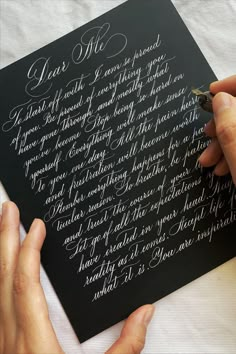 Dear Me,
To start off with I am so proud
of you. Be proud of everything you
have gone through and mostly what
you've become. Stop being so hard on
yourself. Everything will make sense
to you one day. All the pain
and frustration will become worth
Remember everything happens for a
reason. So breathe, be patient
and trust the course of your
Let go of all the expectations
have created in your head.
reality as it comes. Accept life
what it is. You are inspirat